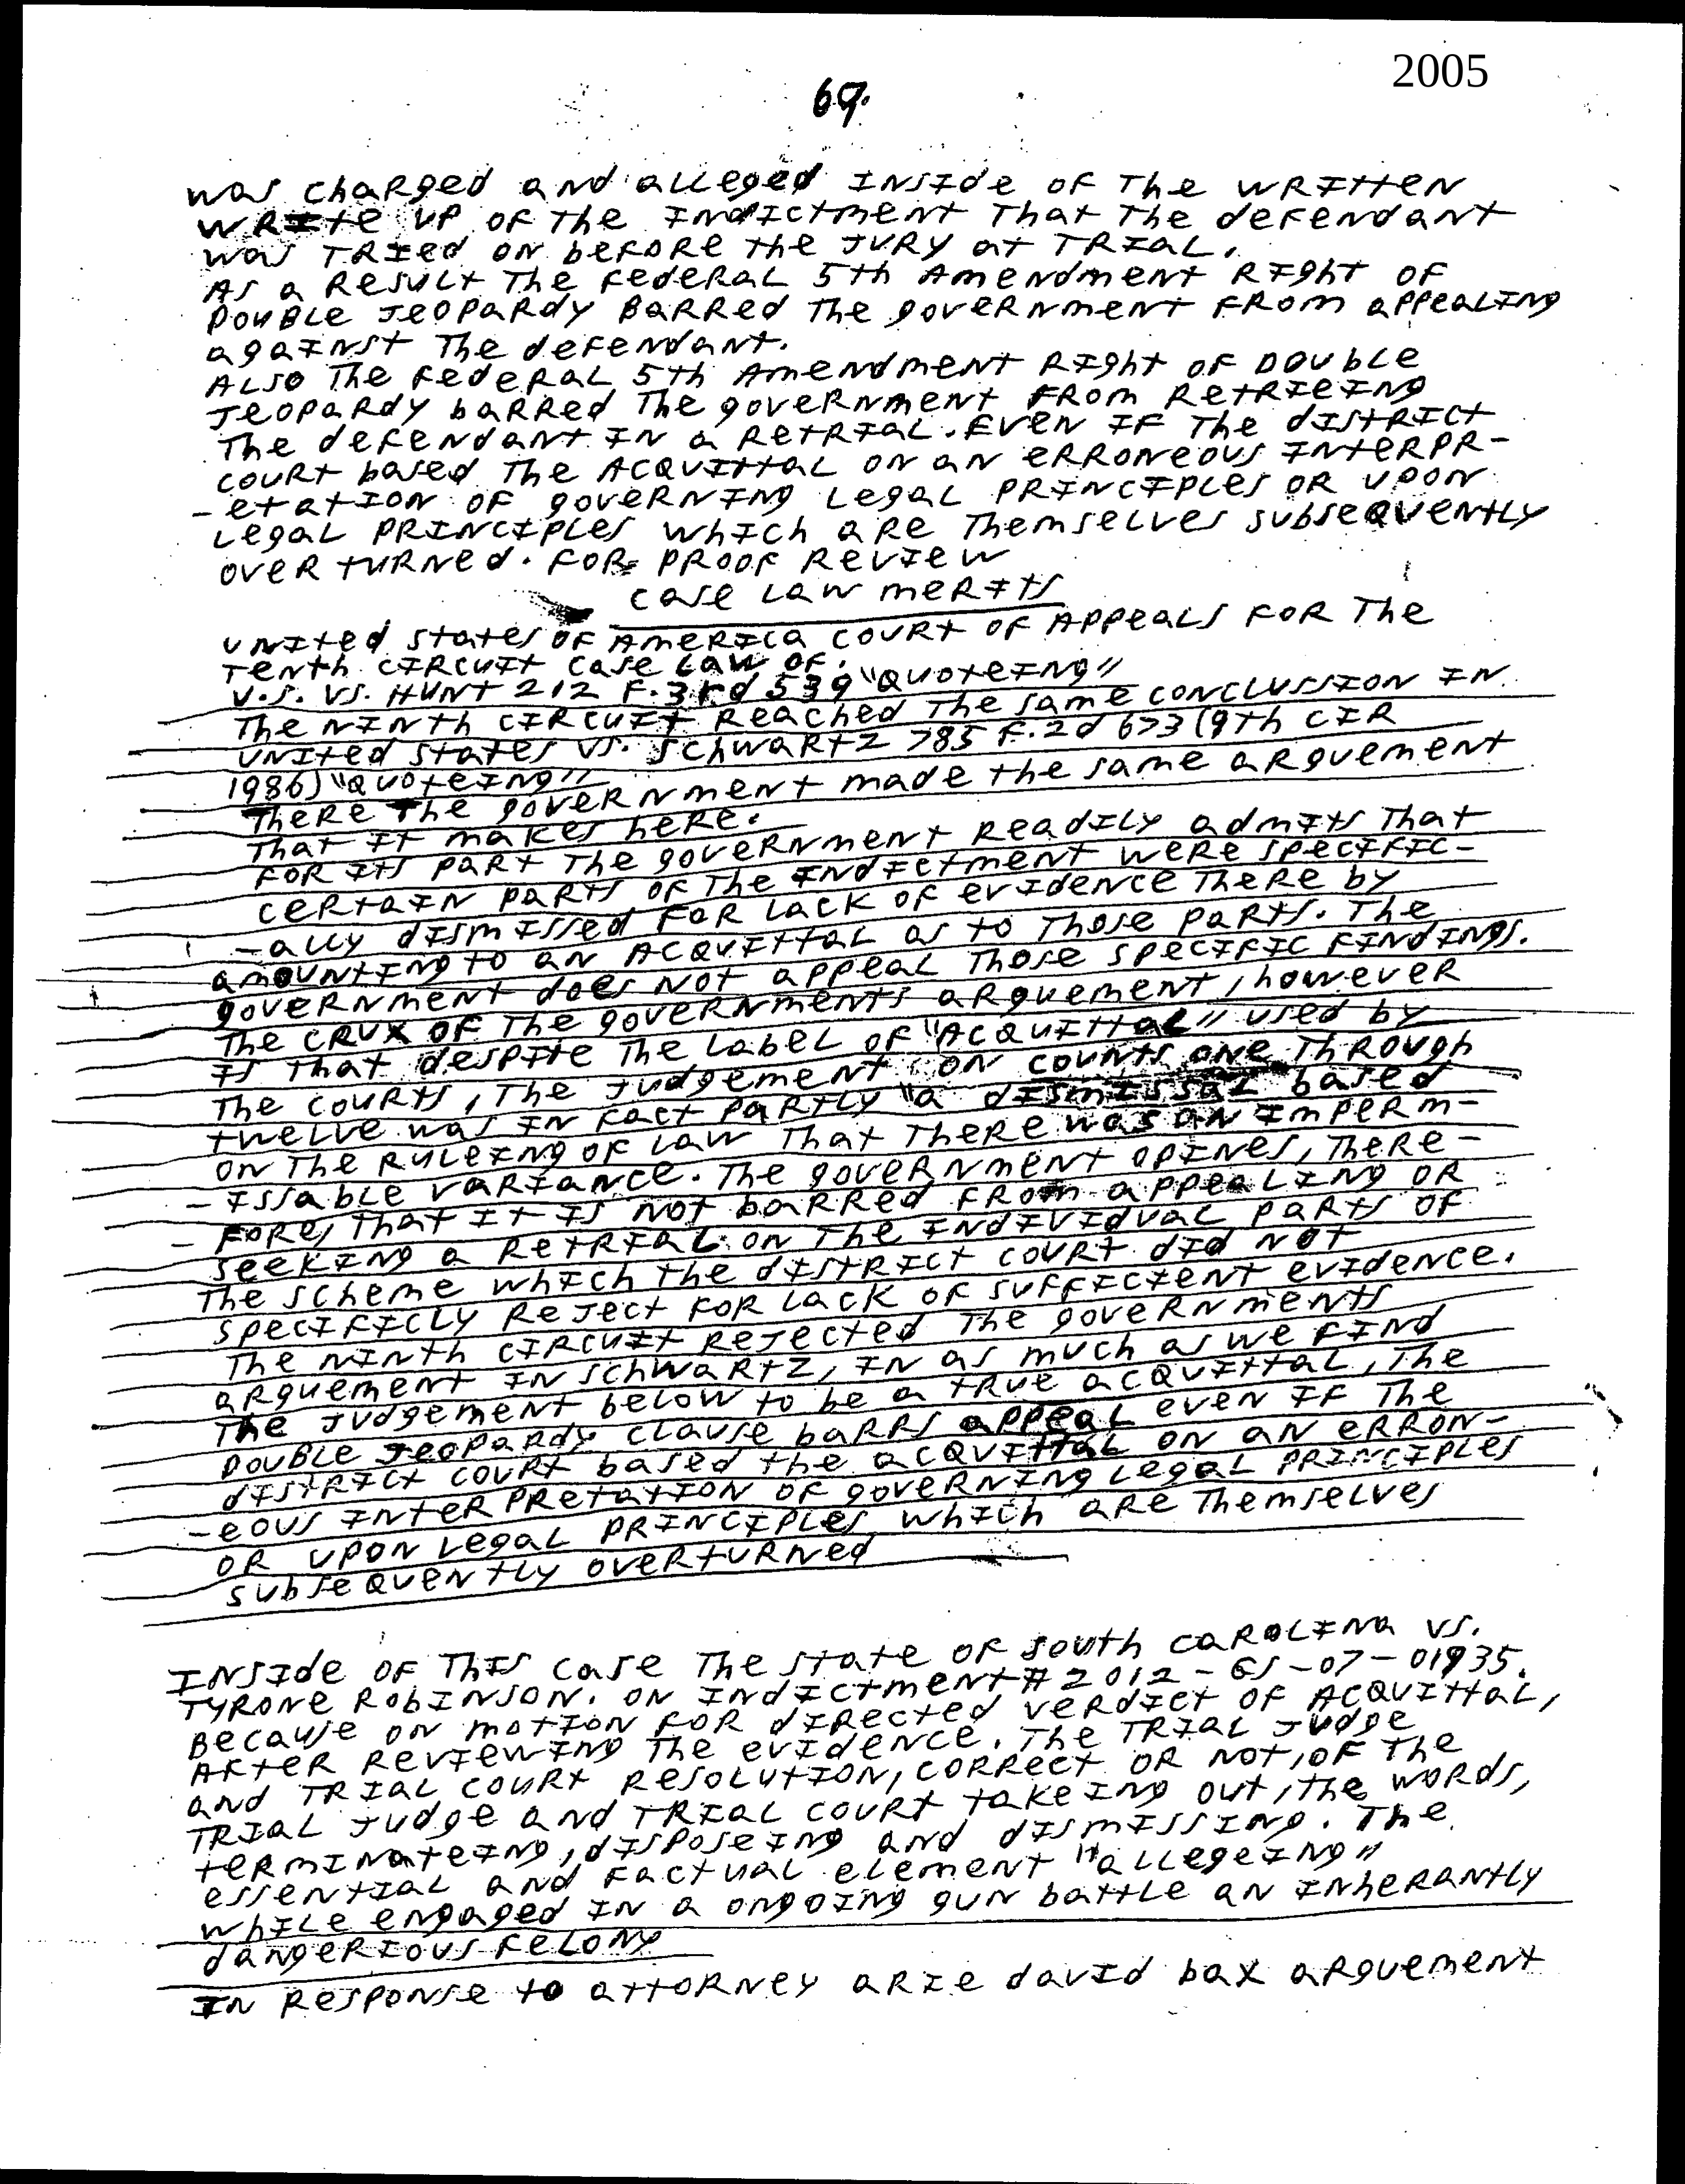 2005
69.
was charged and alleged INSIde OF The WRITTEN
WRITE UP OF The INdICtmENT That The deFENdANT
was TRIed ON beFORE The JURY at TRIAL.
AS a ResULt The FedeRAL 5th AmeNdmENT RIght OF
DOUBLE JEOPARdy BARRED The goveRNmENT FROm appeaLINg
agaINST The deFENdaNT.
ALSO The FedeRAL 5th AmeNdmENT RIght OF DOUbLE
JEOPARdy baRRed The goveRNmENT FROm RetRIEING
The deFENdaNT IN a RetRIaL. EVEN IF The dISTRICT
COURt based The ACQUITTaL ON aN eRRONEOUS INTERPR-
-etatION OF goveRNINg LegaL PRINCIPLES OR UPON
LegaL PRINCIPLES WhICh aRE ThemseLVES SUbseQUENtLy
OVERtURNed. FOR PROOF REVIEW
Case Law meRITS
UNITed StateS OF AmeRICa COURt OF APPeaLS FOR The
TENth CIRCUIT Case Law OF.
U.S. VS. HUNT 212 F.3rd 539 "QUOTEING"
The NINth CIRCUIt Reached The same CONCLUSSION IN
UNITed StateS VS. SChwaRtz 785 F.2d 673 (9th CIR
1986) "QUOTEING"
TheRE The goveRNmeNt made the same aRguemeNt
That It makes heRE.
FOR ItS paRt The goveRNmeNt ReadILy admItS That
CERtaIN paRtS OF The INdICtmeNt weRE SpeCIFIC-
-aLLy dISmISSed FOR Lack OF evIdeNCE TheRE by
amOUNtINg TO aN ACQUIttaL as to Those paRtS. The
goveRNmeNt does Not appeaL Those SpeCIFIC FINdINgS.
The CRUX OF The goveRNmeNtS aRguemeNt, however
IS that despIte The LabeL OF "ACQUIttaL" used by
The COURtS, The JudgemeNt ON COUNtS ONE ThROUgh
tweLve was IN Fact PaRtLy "a dISmISSaL based
ON The RULEINg OF Law That TheRE was aN ImpeRm-
-ISSabLE vaRIaNCE. The goveRNmeNt OpINES, TheRE-
-FORE, That It IS Not baRRed FROm appeaLINg OR
SeekINg a RetRIaL ON The INdIvIduaL paRtS OF
The Scheme whICh the dIStRICt COURt dId Not
SpeCIFICLy ReJect FOR Lack OF SuFFICIeNt evIdeNCE.
The NINth CIRCUIt ReJected The goveRNmeNtS
aRguemeNt IN SchwaRtz, IN as much as we FINd
The JudgemeNt beLow to be a tRUE acQUIttaL, The
DOUbLE JeOpaRdy CLause baRRS appeaL eveN IF The
dIStRICt COURt based the acQUIttaL ON aN eRRON-
-eOUS INteRpRetatION OF goveRNINg LegaL PRINCIPLES
OR UPON LegaL PRINCIPLES whICh aRE ThemSeLVES
SubSeQUENtLy OveRtURNed
INSIde OF ThIS Case The State OF South CaROLINa VS.
TYRONE ROBINSON. ON INdICtmeNt # 2012-GS-07-01935.
BeCause ON mOtION FOR dIRected VeRdICt OF ACQUIttaL,
AFteR RevIewINg The evIdeNCE. The TRIaL Judge
aNd TRIaL COURt ResOLUtION, CORRect OR Not, OF The
TRIaL Judge aNd TRIaL COURt takeINg Out, the WORdS,
teRmINateINg, dISposeINg aNd dISmISSINg. The
esseNtIaL aNd FactuaL eLemeNt "aLLegeINg"
whILE eNgaged IN a ONgOINg guN battLE aN INheRaNtLy
daNgeRIOUS FeLONy
IN RespoNse to attORNey aRIe davId bax aRguemeNt